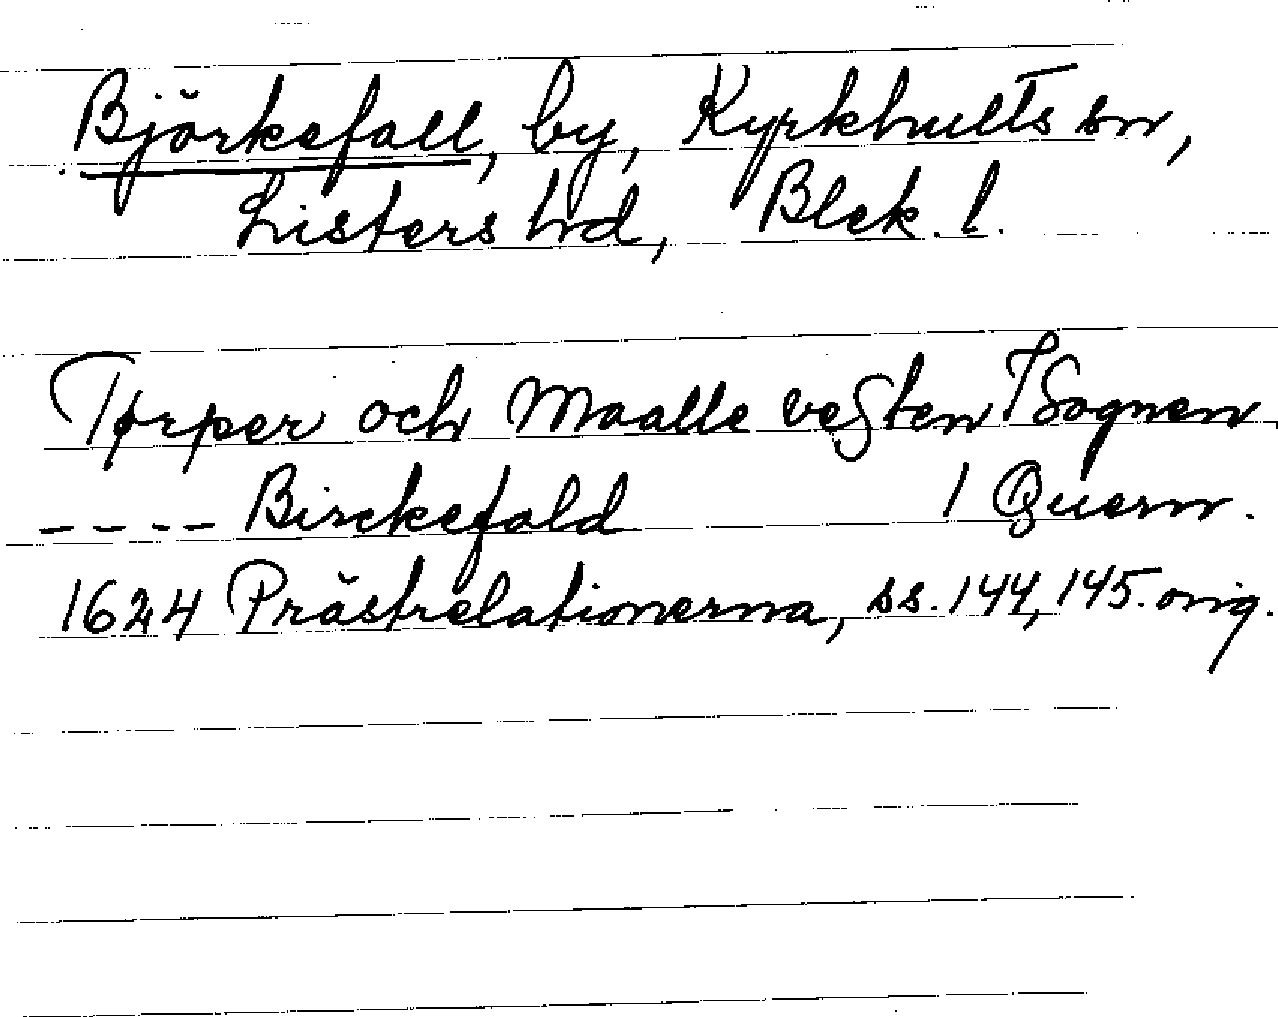 Björkefall, by, Kyrkhults sn,
Listers hd, Blek. l.
Tørper och Maalle vesten I Sognen
---- Birckefald 1 Quern.
1624 Prästrelationerna, ss. 144, 145. orig.